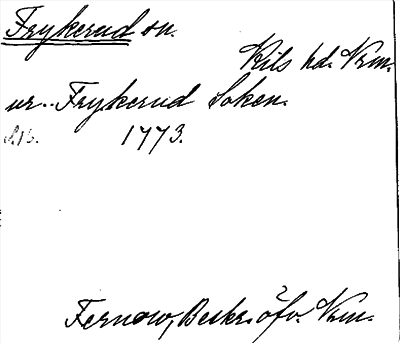 Frykerud sn.
Kils hd. Vrm.
ur. Frykerud Soken.
s. 13. 1773.
Fernow, Beskr. öfv. Vrm.